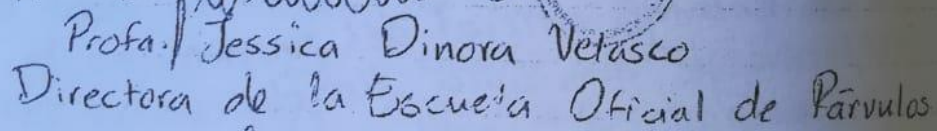 Profa. Jessica Dinora Velasco
Directora de la Escuela Oficial de Párvulos